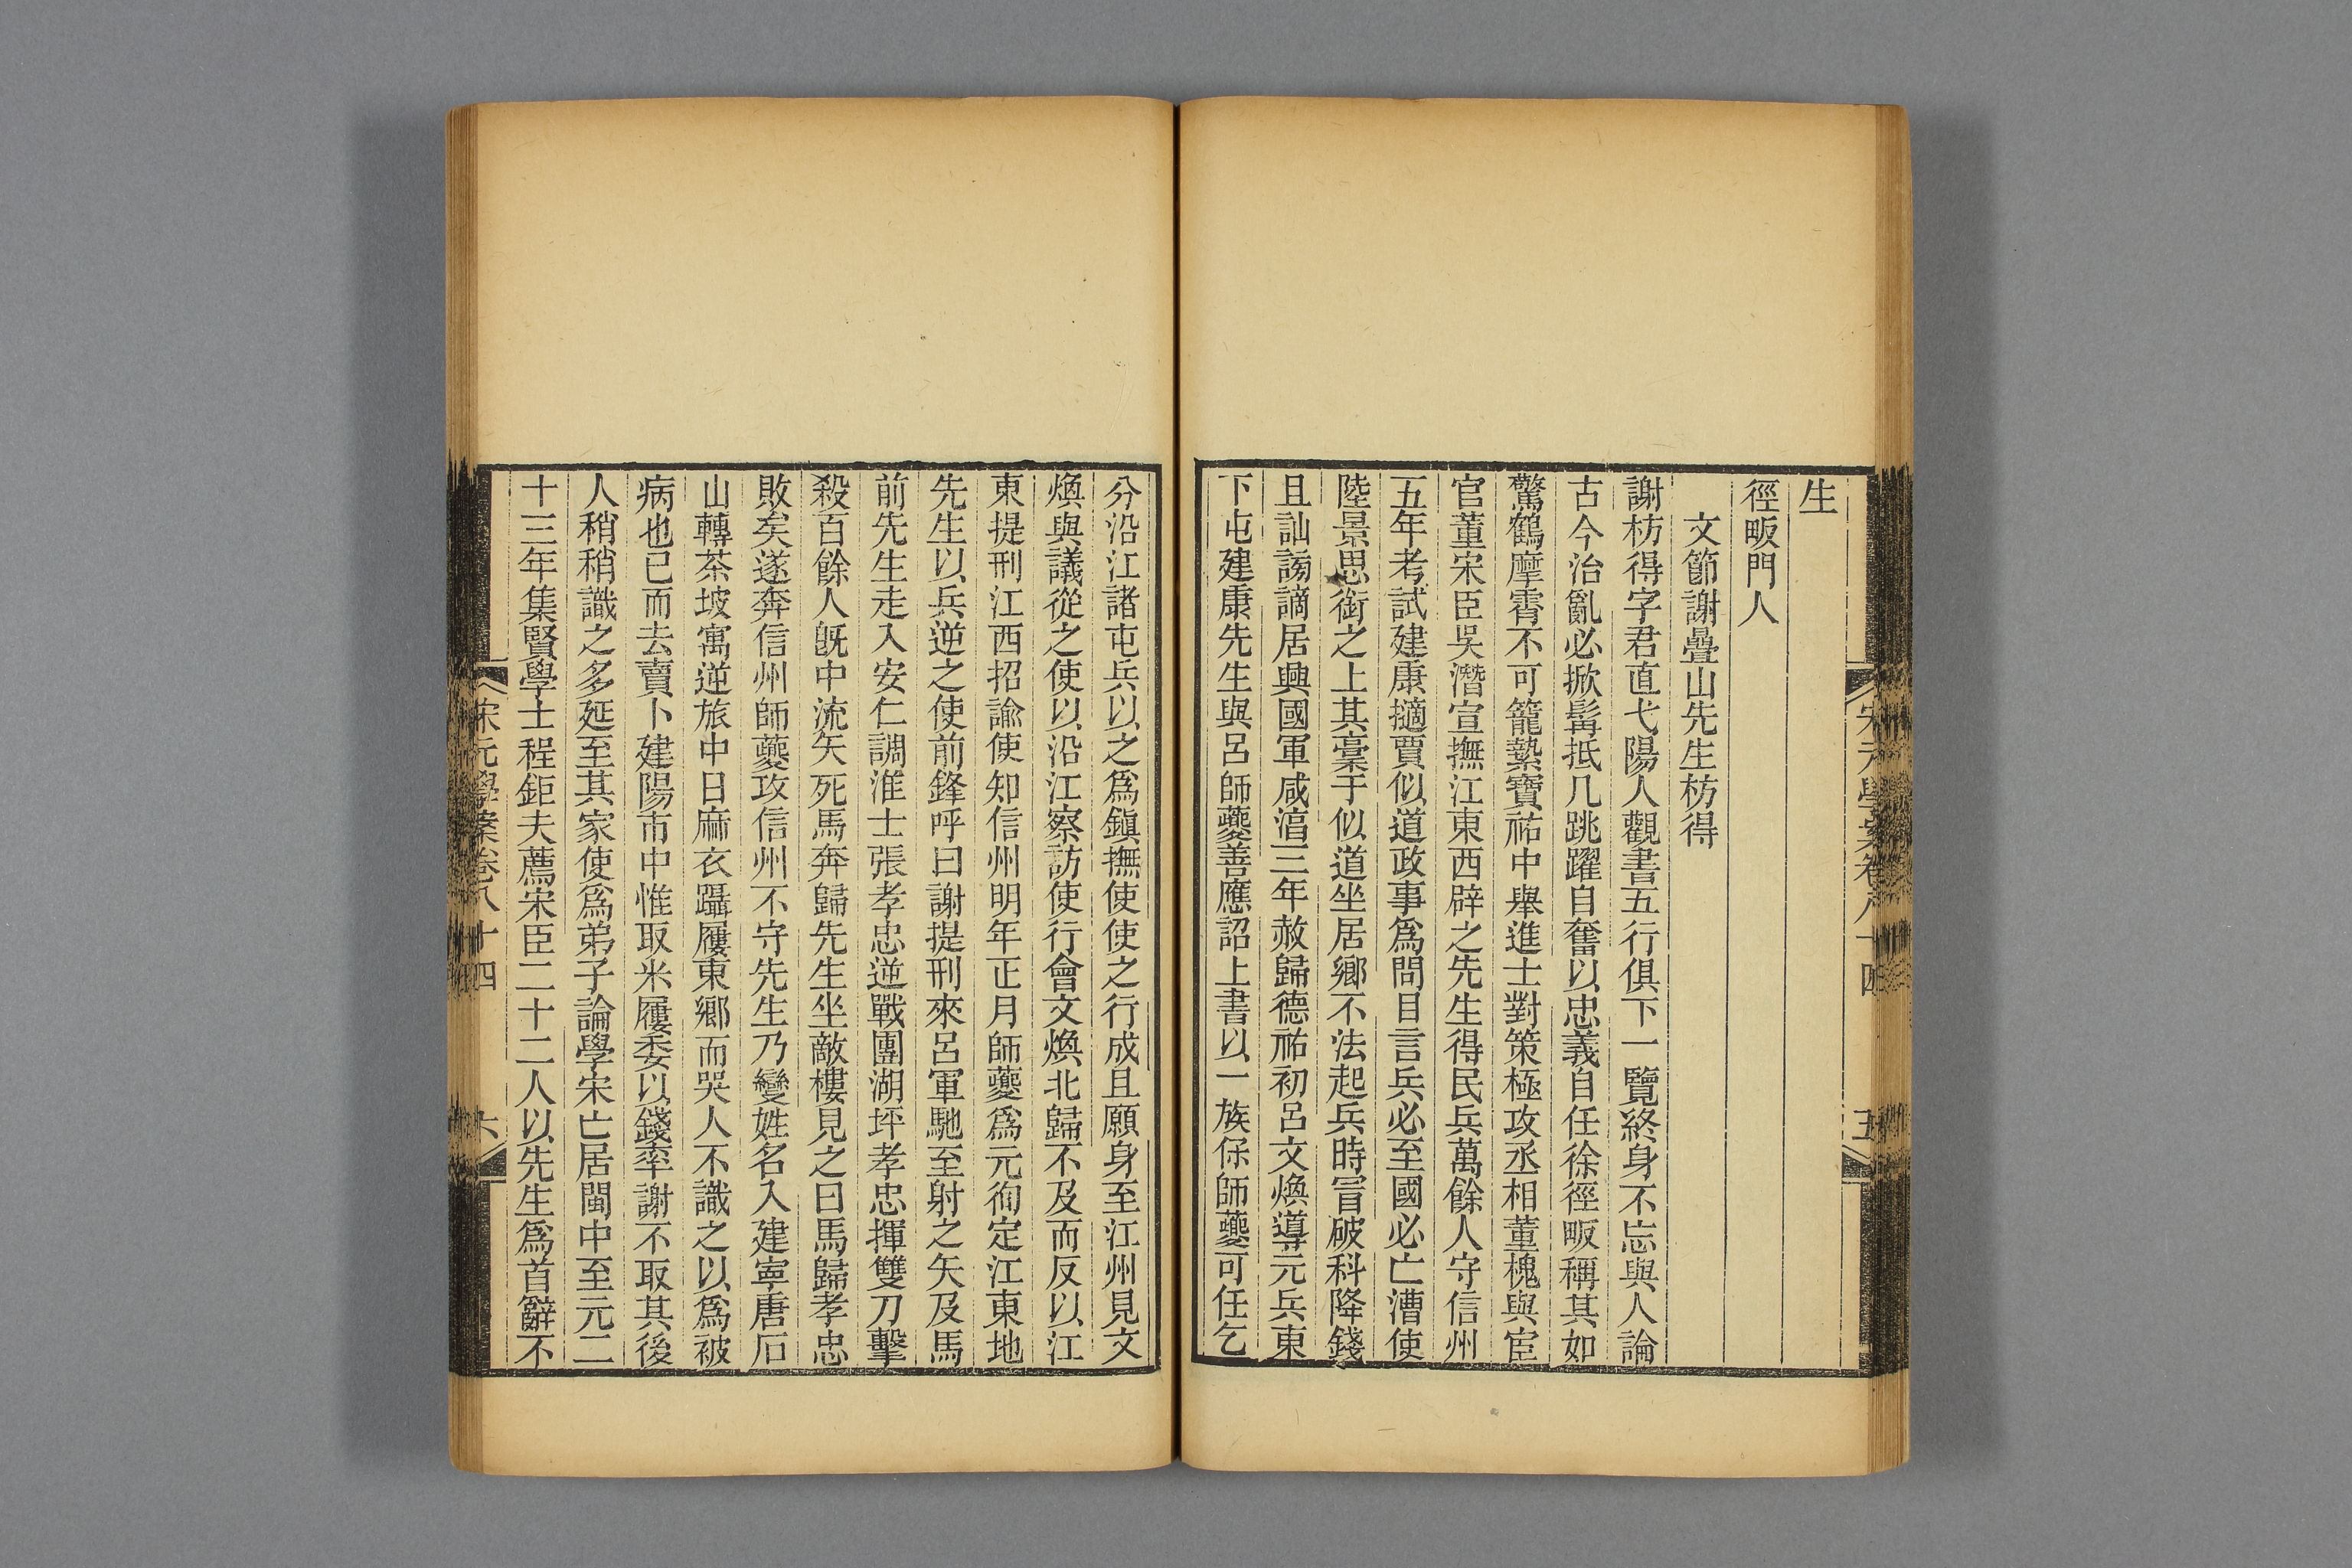 宋元學案卷八十四
五
生
徑畈門人
文節謝疊山先生枋得
謝枋得字君直弋陽人觀書五行俱下一覽終身不忘與人論
古今治亂必掀髯抵几跳躍自奮以忠義自任徐徑畈稱其如
驚鶴摩霄不可籠縶寶祐中舉進士對策極攻丞相董槐與宦
官董宋臣吳潛宣撫江東西辟之先生得民兵萬餘人守信州
五年考試建康擿賈似道政事爲問目言兵必至國必亡漕使
陸景思銜之上其稾于似道坐居鄉不法起兵時冒破科降錢
且訕謗謫居興國軍咸淳三年赦歸德祐初呂文煥導元兵東
下屯建康先生與呂師夔善應詔上書以一族保師夔可任乞
分沿江諸屯兵以之爲鎭撫使使之行成且願身至江州見文
煥與議從之使以沿江察訪使行會文煥北歸不及而反以江
東提刑江西招諭使知信州明年正月師夔爲元徇定江東地
先生以兵逆之使前鋒呼曰謝提刑來呂軍馳至射之矢及馬
前先生走入安仁調淮士張孝忠逆戰團湖坪孝忠揮雙刀擊
殺百餘人旣中流矢死馬奔歸先生坐敵樓見之曰馬歸孝忠
敗矣遂奔信州師夔攻信州不守先生乃變姓名入建寧唐石
山轉茶坡寓逆旅中日麻衣躡屨東鄉而哭人不識之以爲被
病也已而去賣卜建陽市中惟取米屨委以錢率謝不取其後
人稍稍識之多延至其家使爲弟子論學宋亡居閩中至元二
十三年集賢學士程鉅夫薦宋臣二十二人以先生爲首辭不
宋元學案卷八十四
六